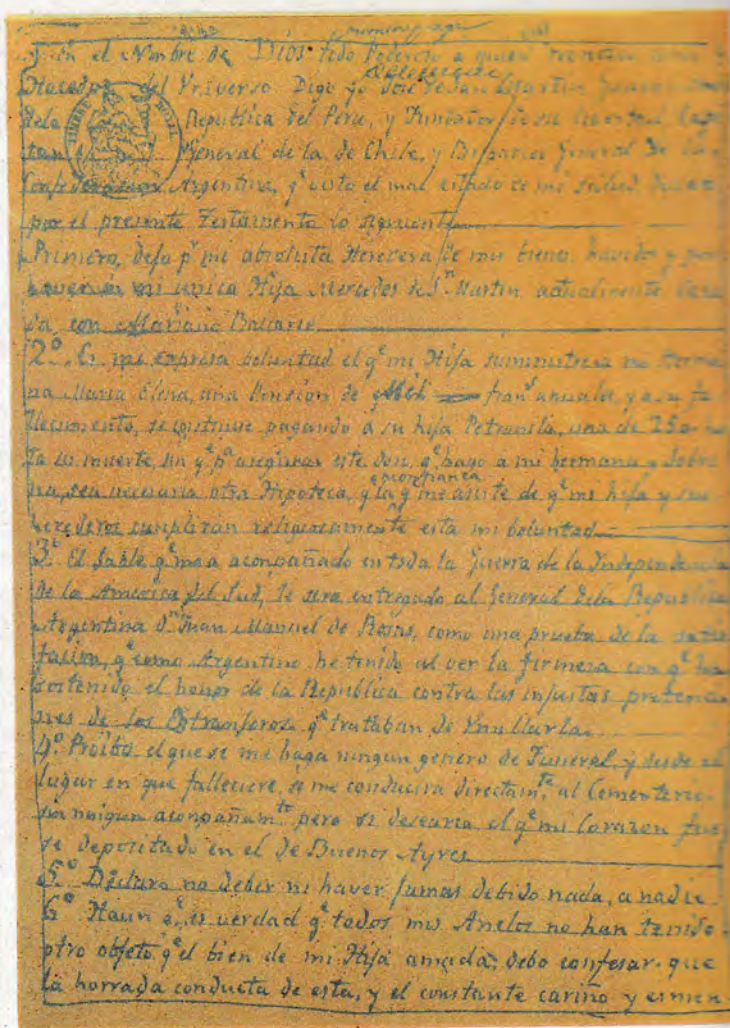 En el Nombre de Dios todo Poderoso a quien reconozco como
Hacedor del Vniverso Digo yo José de San Martin,
dela Republica del Peru, y Fundador de su libertad, Capi
tan General de la de Chile, y Brigadier General de la
Confederacion Argentina, q.e visto el mal estado de mi salud,
por el presente Testamento lo siguiente
Primero, dejo p.r mi absoluta Heredera de mis bienes, havidos y por
haver a mi unica Hija Mercedes de S.n Martin actualmente Casa
da con Mariano Balcarce
2.º Es mi expresa boluntad el q.e mi Hija suministre a mi Herma
na Maria Elena, una Pension de Mil fran.s anuales, y a su fa
llecimiento, se continue pagando a su hija Petronila, una de 250
ta su muerte, sin q.e p.a asegurar este don, q.e hago a mi hermana y Sobri
na, sea necesaria otra Hipoteca, q.e la confianza q.e me asiste de q.e mi hija y sus
herederos cumpliran religiosamente esta mi boluntad
3.º El Sable q.e me a acompañado en toda la Guerra de la Independencia
de la America del Sud, le sera entregado al General dela Republica
Argentina D.n Juan Manuel de Rosas, como una prueba de la satis
facion, q.e como Argentino he tenido al ver la firmeza con q.e ha
sostenido el honor de la Republica contra las injustas pretencio
nes de los Extranjeros q.e trataban de Vmillarla.
4.º Proibo el que se me haga ningun genero de Funeral, y desde el
lugar en que falleciere, se me conducira directam.te al Cementerio
sin ningun acompañam.to pero si desearia, el q.e mi Corazon fue
se depositado en el de Buenos Ayres
5.º Declaro no deber ni haver jamas debido nada, a nadie.
6.º Haun q.e es verdad q.e todos mis Anelos no han tenido
otro objeto q.e el bien de mi Hija amada, debo confesar, que
la honrrada conducta de esta, y el constante cariño y esmer